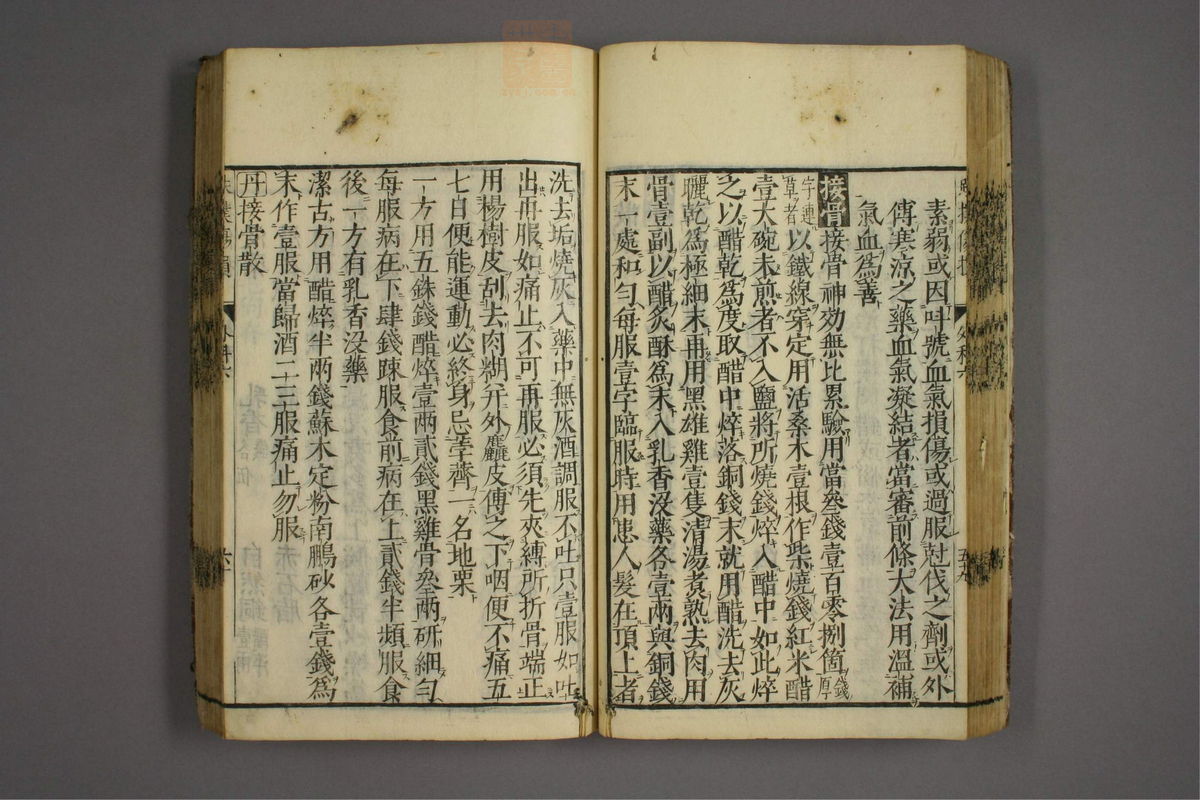 素弱或因叫號血氣損傷或過服尅伐之劑或外
傅寒涼之藥血氣凝結者當審前條大法用溫補
氣血爲善
接骨接骨神効無比累驗用當叄錢壹百零捌箇錢厚
字連草者以鐵線穿定用活桑木壹根作柴燒錢紅米醋
壹大碗未煎者不入鹽將所燒錢焠入醋中如此焠
之以醋乾爲度取醋中焠落銅錢末就用醋洗去灰
曬乾爲極細末再用黑雄雞壹隻清湯煮熟去肉用
骨壹副以醋炙酥爲末入乳香沒藥各壹兩與銅錢
末一處和勻每服壹字臨服時用患人髮在頂上者
洗去垢燒灰入藥中無灰酒調服不吐只壹服如吐
出再服如痛止不可再服必須先夾縛所折骨端正
用楊樹皮刮去肉糊并外麤皮傅之下咽便不痛五
七日便能運動必終身忌荸薺一名地栗
一方用五銖錢醋焠壹兩貳錢黑雞骨叄兩研細勻
每服病在下肆錢踈服食前病在上貳錢半頻服食
後一方有乳香沒藥
潔古方用醋焠半兩錢蘇木定粉南鵬砂各壹錢爲
末作壹服當歸酒二三服痛止勿服
丹接骨散
外科六
六一
外科六
五十九